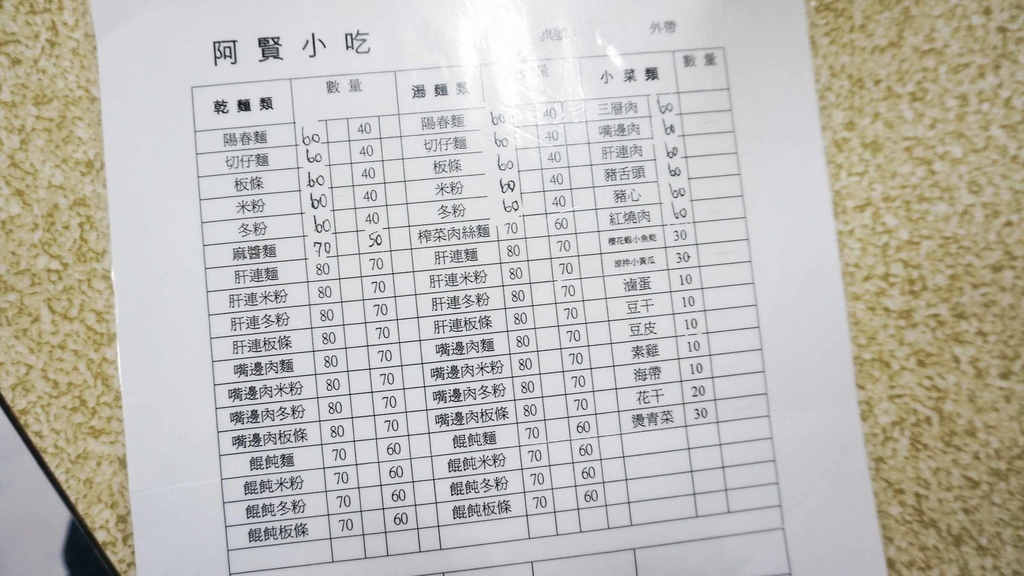 阿賢小吃
外帶
乾麵類 數量 湯麵類 小菜類 數量
陽春麵 60 40 陽春麵 60 40 三層肉 60
切仔麵 60 40 切仔麵 60 40 嘴邊肉 60
板條 60 40 板條 60 40 肝連肉 60
米粉 60 40 米粉 60 40 豬舌頭 60
冬粉 60 40 冬粉 60 40 豬心 60
麻醬麵 70 50 榨菜肉絲麵 70 60 紅燒肉 60
肝連麵 80 70 肝連麵 80 70 櫻花蝦小魚乾 30
肝連米粉 80 70 肝連米粉 80 70 涼拌小黃瓜 30
肝連冬粉 80 70 肝連冬粉 80 70 滷蛋 10
肝連板條 80 70 肝連板條 80 70 豆干 10
嘴邊肉麵 80 70 嘴邊肉麵 80 70 豆皮 10
嘴邊肉米粉 80 70 嘴邊肉米粉 80 70 素雞 10
嘴邊肉冬粉 80 70 嘴邊肉冬粉 80 70 海帶 10
嘴邊肉板條 80 70 嘴邊肉板條 80 70 花干 20
餛飩麵 70 60 餛飩麵 70 60 燙青菜 30
餛飩米粉 70 60 餛飩米粉 70 60
餛飩冬粉 70 60 餛飩冬粉 70 60
餛飩板條 70 60 餛飩板條 70 60